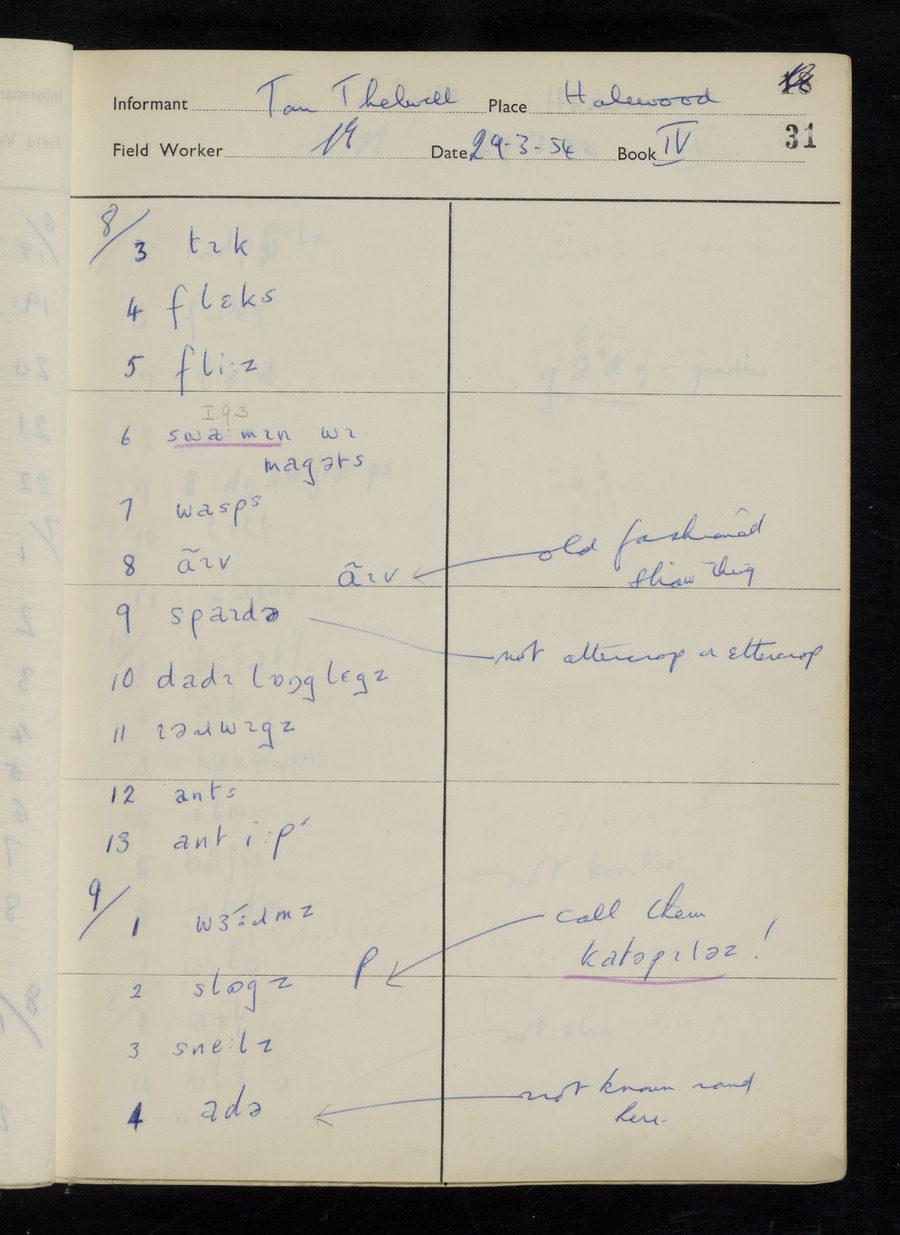 Informant Tom Thelwell Place Halewood
Field Worker Date 29-3-54 Book IV 31
8/3 tɪk
4 flɛks
5 fli:z
I.93
6 swa:mɪn wɪ
magəts
7 wasps
8 ãɪv ãɪv old fashioned
straw thing
9 spaɪdə not attercrop or ettercrop
10 dadɪ lɒŋglɛgz
11 ɪəɹwɪgz
12 ants
13 ant i:p
9/1 wɜ̃:ɹmz call them
2 slʊgz P katəpɪləz!
3 sne:lz
4 adə not known round
here.